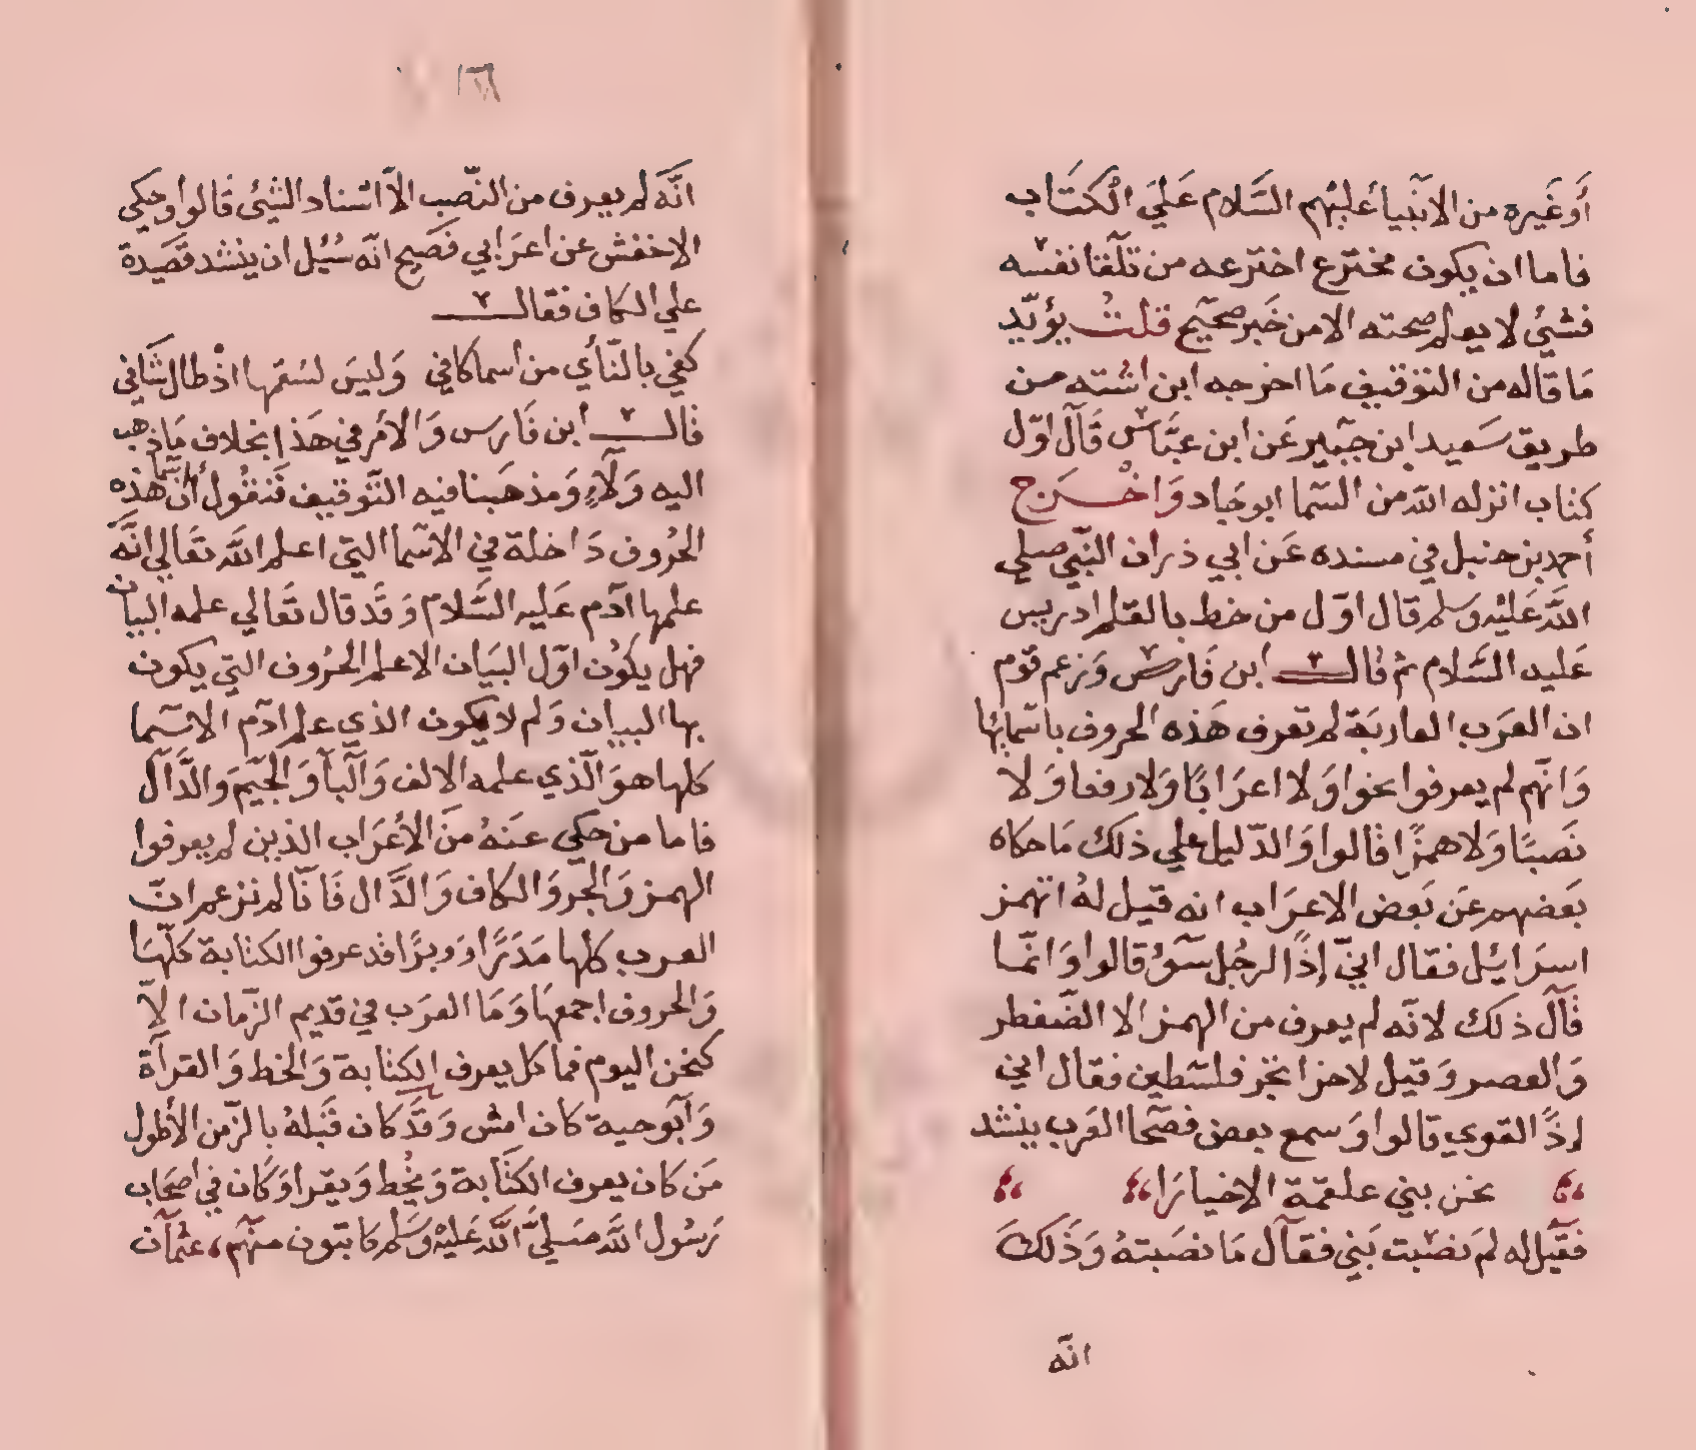 أَوغَيره من الانبيا عليهم السَّلام عَليَ الْكتَاب
فاما ان يكون مخترع اخترعه من تلقا نفسه
فشيئ لا يعلم صحته الا من خَبر صحيح قلت يؤيّد
مَا قاله من التوقيف مَا اخرجه ابن اشته من
طريق سَعيد ابن جبير عَن ابن عبَّاس قَال اوّل
كتاب انزله الله من السّما ابو جَاد وَاخْــرَج
أحمد بن حنبل في مسنده عَن ابي ذر ان النبّي صلي
اللَّه عَليْه وسَلم قال اوّل من خط بالقلم ادريس
عَليه السَّلام ثم قالــ ابن فَارس وَزعم قوم
ان العرَب العاربَة لم تعرف هَذه الحروف باسمائها
وَانهّم لم يعرفوا نحوا وَلا اعرَابًا وَلا رفعا وَلا
نَصبًا وَلا همزًا قالوا وَالدّليل علي ذلك مَا حكاه
بَعضهم عَن بَعض الاعرَاب انه قيل لهُ اتهمز
اسرَائيل فقال انيّ إذًا لرجُل سَوُ قالوا وَانمّا
قَال ذلك لانّه لم يعرف من الهمز الا الضّغطر
وَالعصر وَقيل لاخر اتجر فلسَطين فقال اني
إذًا لقوي قالوا وَسمع بعض فصَحا العَرب ينشد
نحن بني علقمة الاخيارَا
فقَيل له لمَ نصَبت بَني فقَال مَا نصَبتهُ وَذَلكَ
انّه
١٦٦
انَّه لم يعرف من النصّب الاّ اسْناد الشيئ قَالوا وحكي
الاخفش عن اعرَابي فَصَيح انّه سُئِل ان ينشد قَصَيدة
علي الكاف فقالــ
كفي بالنّأي من اسما كافي وَليسَ لسُقمها اذْ طال شَافي
قالــ ابن فَارس وَالأمر في هَذا بخلاف مَا ذهب
اليه وَلَاءِ وَمذهَبنا فيه التّوقيف فَنقُول أنّ أسما هذه
الحرُوف دَاخلة في الاسَما التي اعلم اللَّه تعَالي انَّه
علمها ادَم عَليه السَّلام وَقَد قال تَعَالي علمه البيان
فهل يكوُن اوّل البيَان الا علم الحرُوف التي يكون
بها البيان وَلم لا يكون الذي علم ادَم الاسَما
كلها هوَ الّذي علمه الالف وَالَبأ وَالجيَم وَالدَّال
فاما من حكي عَنهُ منَ الأعرَاب الذين لم يعرفوا
الهمز وَالجرّ وَالكاف وَالدَّال فَانَّا لم نزعم انّ
العرب كلها مَدَرًا ووبرًا قد عرفوا الكتابة كلّهَا
وَالحروف اجمعهَا وَمَا العرَب في قديم الزّمان الاّ
كنحن اليوم فما كل يعرف الكتابة وَالخط وَالقرآة
وَابَوحية كان امسْ وَقَد كان قَبلهُ بالزّمن الأطول
مَن كان يعرف الكتَابة وَيخُط وَيقرا وَكَان في اصحَاب
رَسُول اللَّه صَلّيَ اللَّه عَليْه وَسَلم كاتبون منهَم، عثمَان